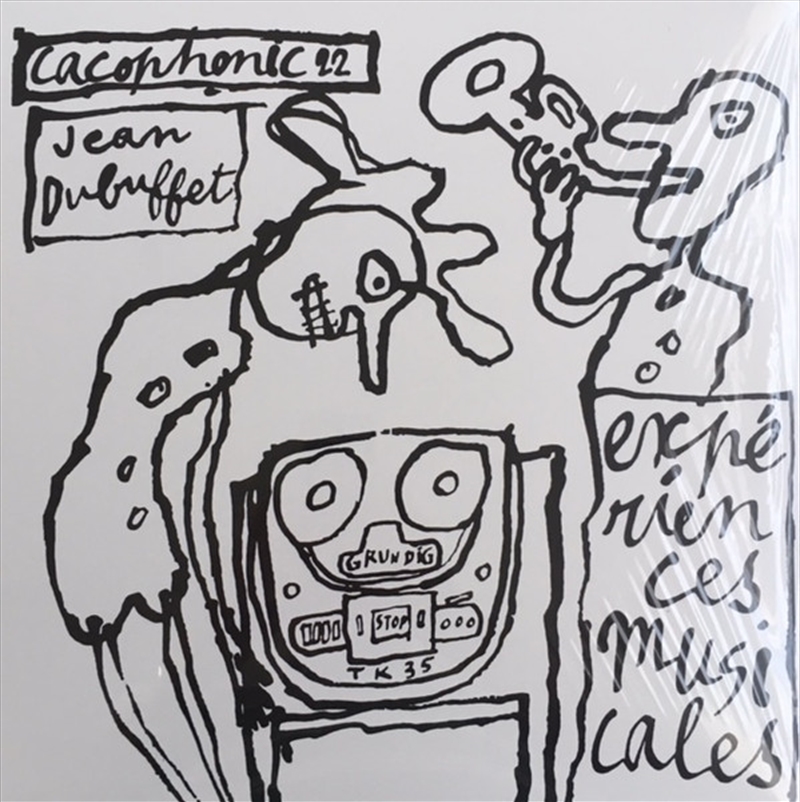 cacophonic 22
Jean
Dubuffet
expé
rien
ces
musi
cales
GRUNDIG
STOP
TK 35